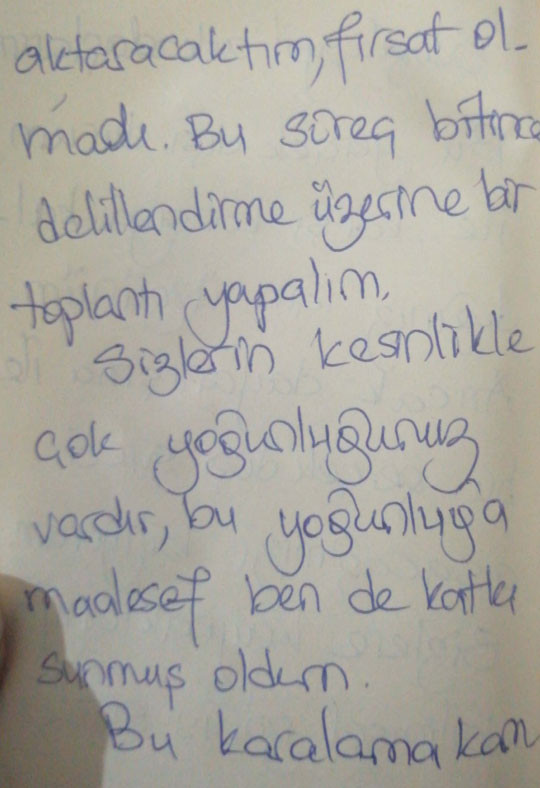 aktaracaktım, fırsat ol-
madı. Bu süreç bitince
delillendirme üzerine bir
toplantı yapalım.
Sizlerin kesinlikle
çok yoğunluğunuz
vardır, bu yoğunluğa
maalesef ben de katkı
sunmuş oldum.
Bu karalama